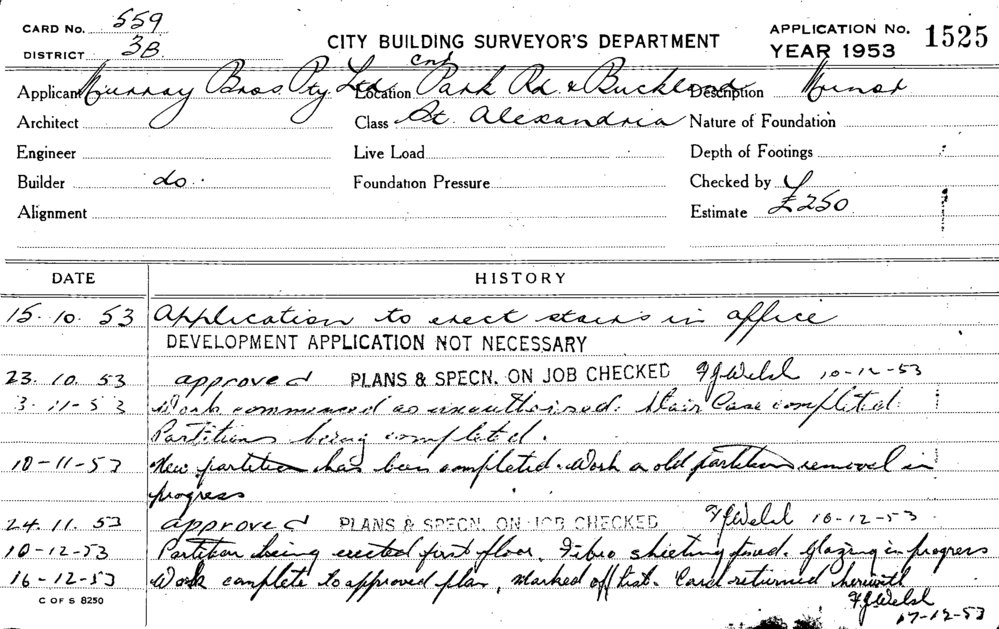 CARD No. 559
DISTRICT 3B
CITY BUILDING SURVEYOR'S DEPARTMENT
APPLICATION No. 1525
YEAR 1953
Applicant Murray Bros. Pty Ltd Location cnr Park Rd & Buckland Description Minor
Architect Class St. Alexandria Nature of Foundation
Engineer Live Load Depth of Footings
Builder do. Foundation Pressure Checked by
Alignment Estimate £250
DATE HISTORY
15.10.53 Application to erect stairs in office
DEVELOPMENT APPLICATION NOT NECESSARY
23.10.53 approved PLANS & SPECN. ON JOB CHECKED FJWelsh 10-12-53
3-11-53 Work commenced as unauthorised. Stair Case completed.
Partitions being completed.
10-11-53 New partition has been completed. Work on old partition removal in
progress
24.11.53 approved PLANS & SPECN. ON JOB CHECKED FJWelsh 10-12-53
10-12-53 Partition being erected first floor. Fibro sheeting fixed. Glazing in progress
16-12-53 Work complete to approved plan, marked off list. Card returned herewith
FJWelsh
17-12-53
C OF S 8250